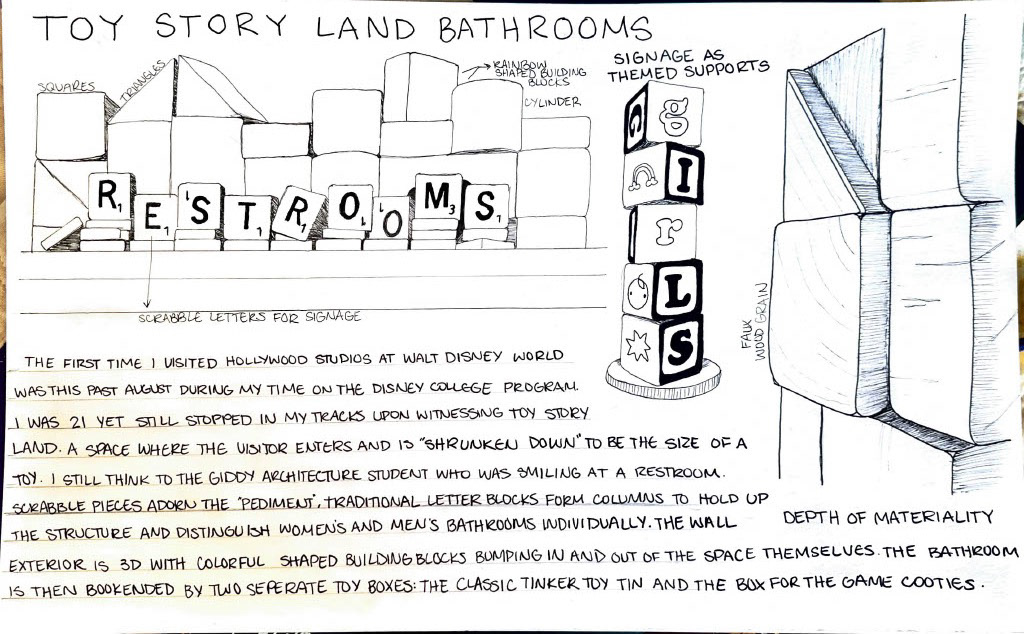 TOY STORY LAND BATHROOMS
SQUARES
TRIANGLES
RAINBOW
SHAPED BUILDING
BLOCKS
CYLINDER
R1 E1 S1 T1 R1 O1 O1 M3 S1
SCRABBLE LETTERS FOR SIGNAGE
SIGNAGE AS
THEMED SUPPORTS
G g
I
r
L
S
FAUX
WOOD GRAIN
DEPTH OF MATERIALITY
THE FIRST TIME I VISITED HOLLYWOOD STUDIOS AT WALT DISNEY WORLD
WAS THIS PAST AUGUST DURING MY TIME ON THE DISNEY COLLEGE PROGRAM.
I WAS 21 YET STILL STOPPED IN MY TRACKS UPON WITNESSING TOY STORY
LAND. A SPACE WHERE THE VISITOR ENTERS AND IS "SHRUNKEN DOWN" TO BE THE SIZE OF A
TOY. I STILL THINK TO THE GIDDY ARCHITECTURE STUDENT WHO WAS SMILING AT A RESTROOM.
SCRABBLE PIECES ADORN THE "PEDIMENT", TRADITIONAL LETTER BLOCKS FORM COLUMNS TO HOLD UP
THE STRUCTURE AND DISTINGUISH WOMEN'S AND MEN'S BATHROOMS INDIVIDUALLY. THE WALL
EXTERIOR IS 3D WITH COLORFUL SHAPED BUILDING BLOCKS BUMPING IN AND OUT OF THE SPACE THEMSELVES. THE BATHROOM
IS THEN BOOKENDED BY TWO SEPERATE TOY BOXES: THE CLASSIC TINKER TOY TIN AND THE BOX FOR THE GAME COOTIES.